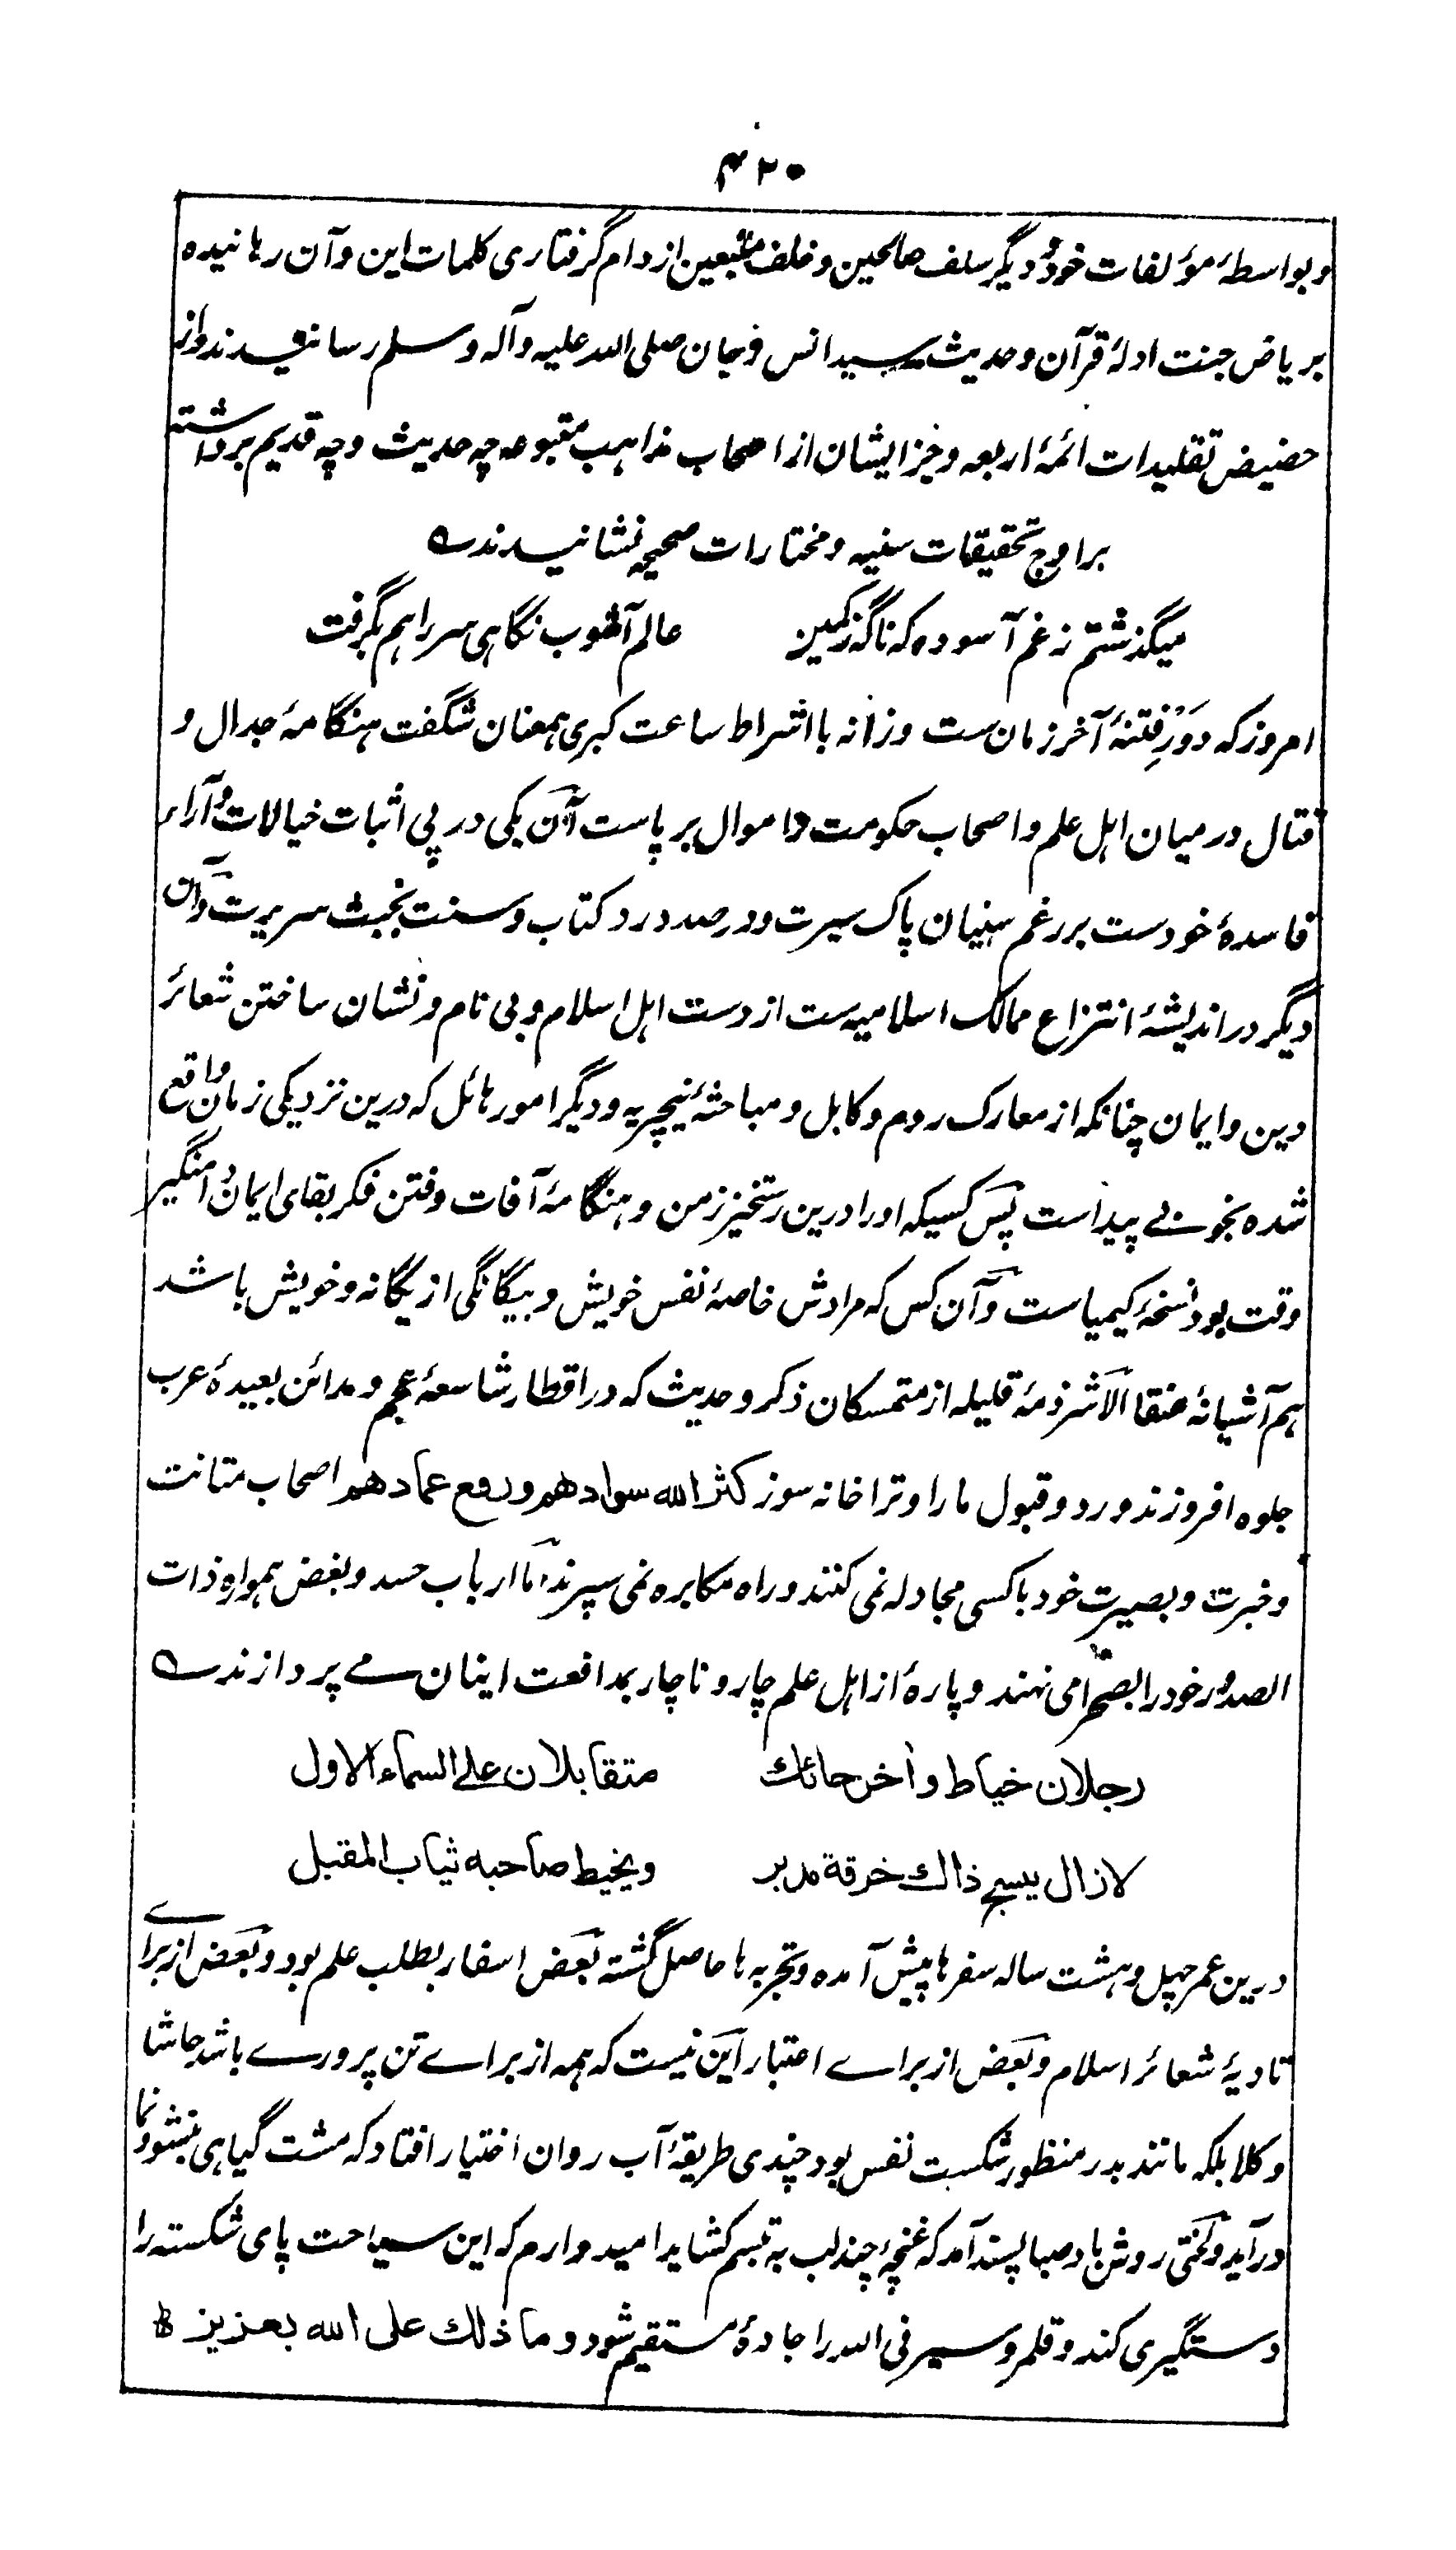 ۴۲۰
وبواسطهٔ مؤلفات خود و دیگر سلف صالحین و خلف متبعین از دام گرفتاری کلمات این و آن رهانیده
بریاض جنت ادلهٔ قرآن و حدیث سید انس و جان صلی الله علیه وآله وسلم رسانیدند و از
حضیض تقلیدات ائمهٔ اربعه و غیر ایشان از اصحاب مذاهب متبوعه چه حدیث و چه قدیم برداشته
بر اوج تحقیقات سنیه و مختارات صحیحه نشانیدند ے
میگذشتم ز غم آسوده که ناگه ز کمین عالم آشوب نگاهی سر راهم بگرفت
امروز که دَورِ فتنهٔ آخر زمان ست و زمانه با اشراط ساعت کبری همعنان شگفت هنگامهٔ جدال و
قتال درمیان اهل علم و اصحاب حکومت و اموال برپاست آن یکی در پی اثبات خیالات و آراء
فاسدهٔ خودست بر رغم سنیان پاک سیرت و درصدد رد کتاب و سنت بخبث سریرت و آن
دیگر در اندیشهٔ انتزاع ممالک اسلامیه ست از دست اهل اسلام و بی نام و نشان ساختن شعائر
دین و ایمان چنانکه از معارک روم و کابل و مباحثهٔ نیچریه و دیگر امور هائل که درین نزدیکی زمان واقع
شده بخوبی پیداست پس کسیکه او را درین رستخیز زمن و هنگامهٔ آفات و فتن فکر بقای ایمان دامنگیر
وقت بود نسخهٔ کیمیاست و آن کس که مرادش خاصهٔ نفس خویش و بیگانگی از یگانه و خویش باشد
هم آشیانهٔ عنقا الا شرذمهٔ قلیله از متمسکان ذکر و حدیث که در اقطار شاسعهٔ عجم و مدائن بعیدهٔ عرب
جلوه افروزند و رد و قبول ما را و ترا خانه سوز کثر الله سوادهم ورفع عمادهم اصحاب متانت
و خبرت و بصیرت خود با کسی مجادله نمی کنند و راه مکابره نمی سپرند اما ارباب حسد و بغض همواره ذات
الصدور خود را بصحرا می نهند و پارهٔ از اهل علم چار و ناچار بمدافعت اینان مے پردازند ے
رجلان خیاط و آخر حائك متقابلان علی السماء الاول
لازال ینسج ذاك خرقة مدبر ویخیط صاحبه ثیاب المقبل
درین عمر چهل و هشت ساله سفرها پیش آمده و تجربه ها حاصل گشته بعض اسفار بطلب علم بود و بعض از براے
تادیهٔ شعائر اسلام و بعض از براے اعتبار این نیست که همه از براے تن پرورے باشد حاشا
و کلا بلکه مانند بدر منظور شکست نفس بود چندی طریقهٔ آب روان اختیار افتاد که مشت گیاهی بنشو و نما
درآید و لختی روش باد صبا پسند آمد که غنچهٔ چند لب به تبسم کشاید امیدوارم که این سیاحت پای شکسته را
دستگیری کند و قلمرو سیر فی الله را جادهٔ مستقیم شود و ما ذلك علی الله بعزیز ط